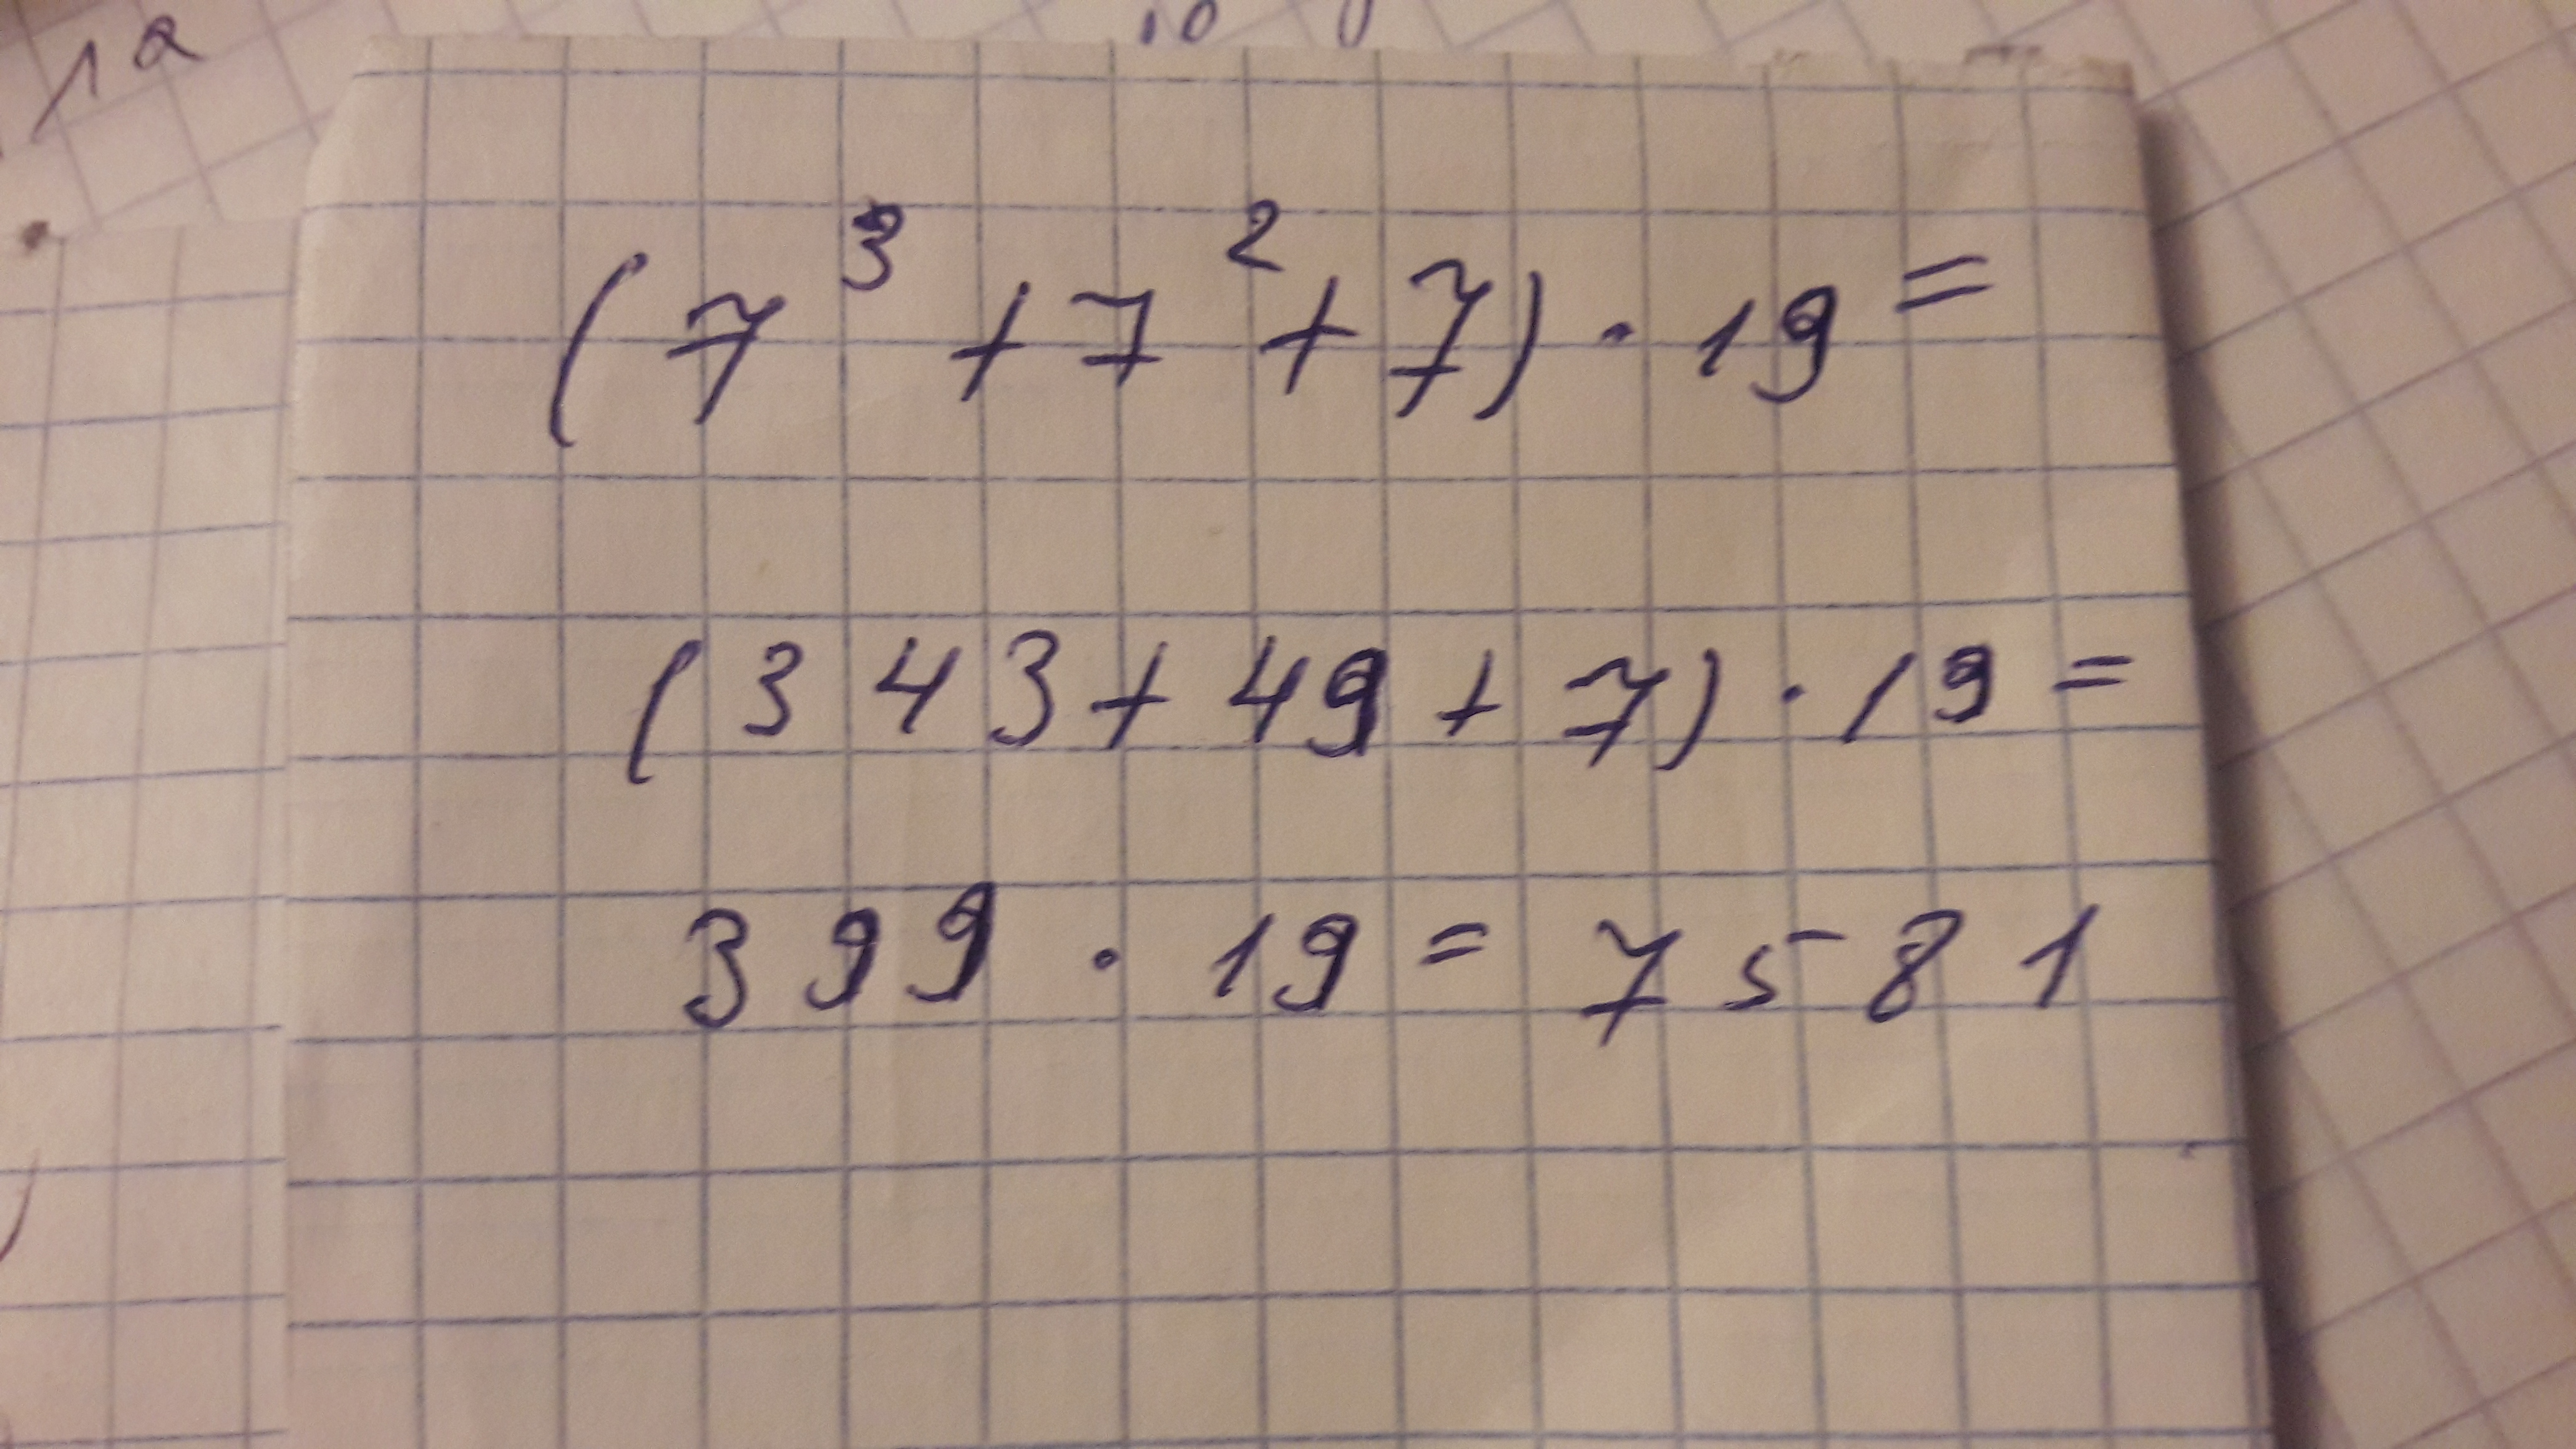 1a
(7³+7²+7)·19=
(343+49+7)·19=
399·19=7581